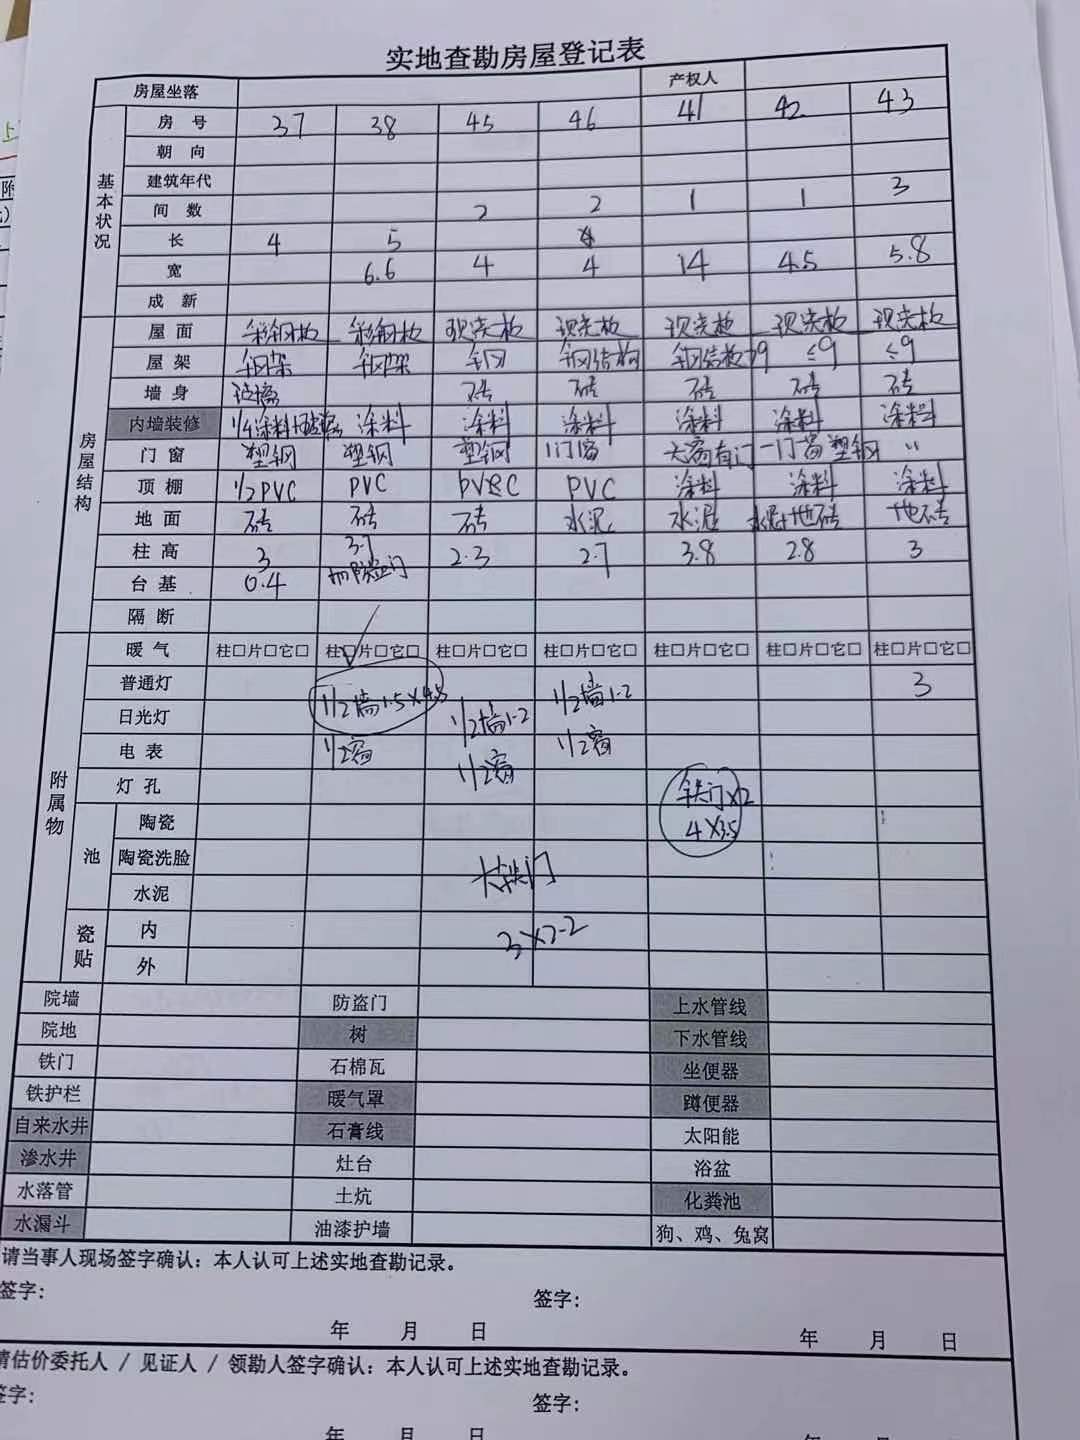 实地查勘房屋登记表
房屋坐落 产权人
基本状况
房号 37 38 45 46 41 42 43
朝向
建筑年代 3
间数 2 2 1 1
长 4 5
宽 6.6 4 4 14 4.5 5.8
成新
房屋结构
屋面 彩钢板 彩钢板 现浇板 现浇板 现浇板 现浇板 现浇板
屋架 钢架 钢架 钢 钢结构 钢结构 ≤9 ≤9
墙身 玻璃 砖 砖 砖 砖 砖
内墙装修 1/4涂料+ 涂料 涂料 涂料 涂料 涂料 涂料
门窗 塑钢 塑钢 塑钢 1门窗 大窗有门 一门窗塑钢 〃
顶棚 1/2PVC PVC PVC PVC 涂料 涂料 涂料
地面 砖 砖 砖 水泥 水泥 水泥+地砖 地砖
柱高 3 3.7 2.3 2.7 3.8 2.8 3
台基 0.4 加防盗门
隔断
附属物
暖气 柱□片□它□ 柱□片□它□ 柱□片□它□ 柱□片□它□ 柱□片□它□ 柱□片□它□ 柱□片□它□
普通灯 1/2墙1.5×4.5 1/2墙1.2 3
日光灯 1/2墙1.2
电表 1/2窗 1/2窗 1/2窗
灯孔 铁门×2
池
陶瓷 4×3.5
陶瓷洗脸
水泥 大铁门
瓷贴
内 3×2.2
外
院墙 防盗门 上水管线
院地 树 下水管线
铁门 石棉瓦 坐便器
铁护栏 暖气罩 蹲便器
自来水井 石膏线 太阳能
渗水井 灶台 浴盆
水落管 土炕 化粪池
水漏斗 油漆护墙 狗、鸡、兔窝
请当事人现场签字确认：本人认可上述实地查勘记录。
签字： 签字：
年 月 日 年 月 日
请估价委托人 / 见证人 / 领勘人签字确认：本人认可上述实地查勘记录。
签字： 签字：
年 月 日 年 月 日